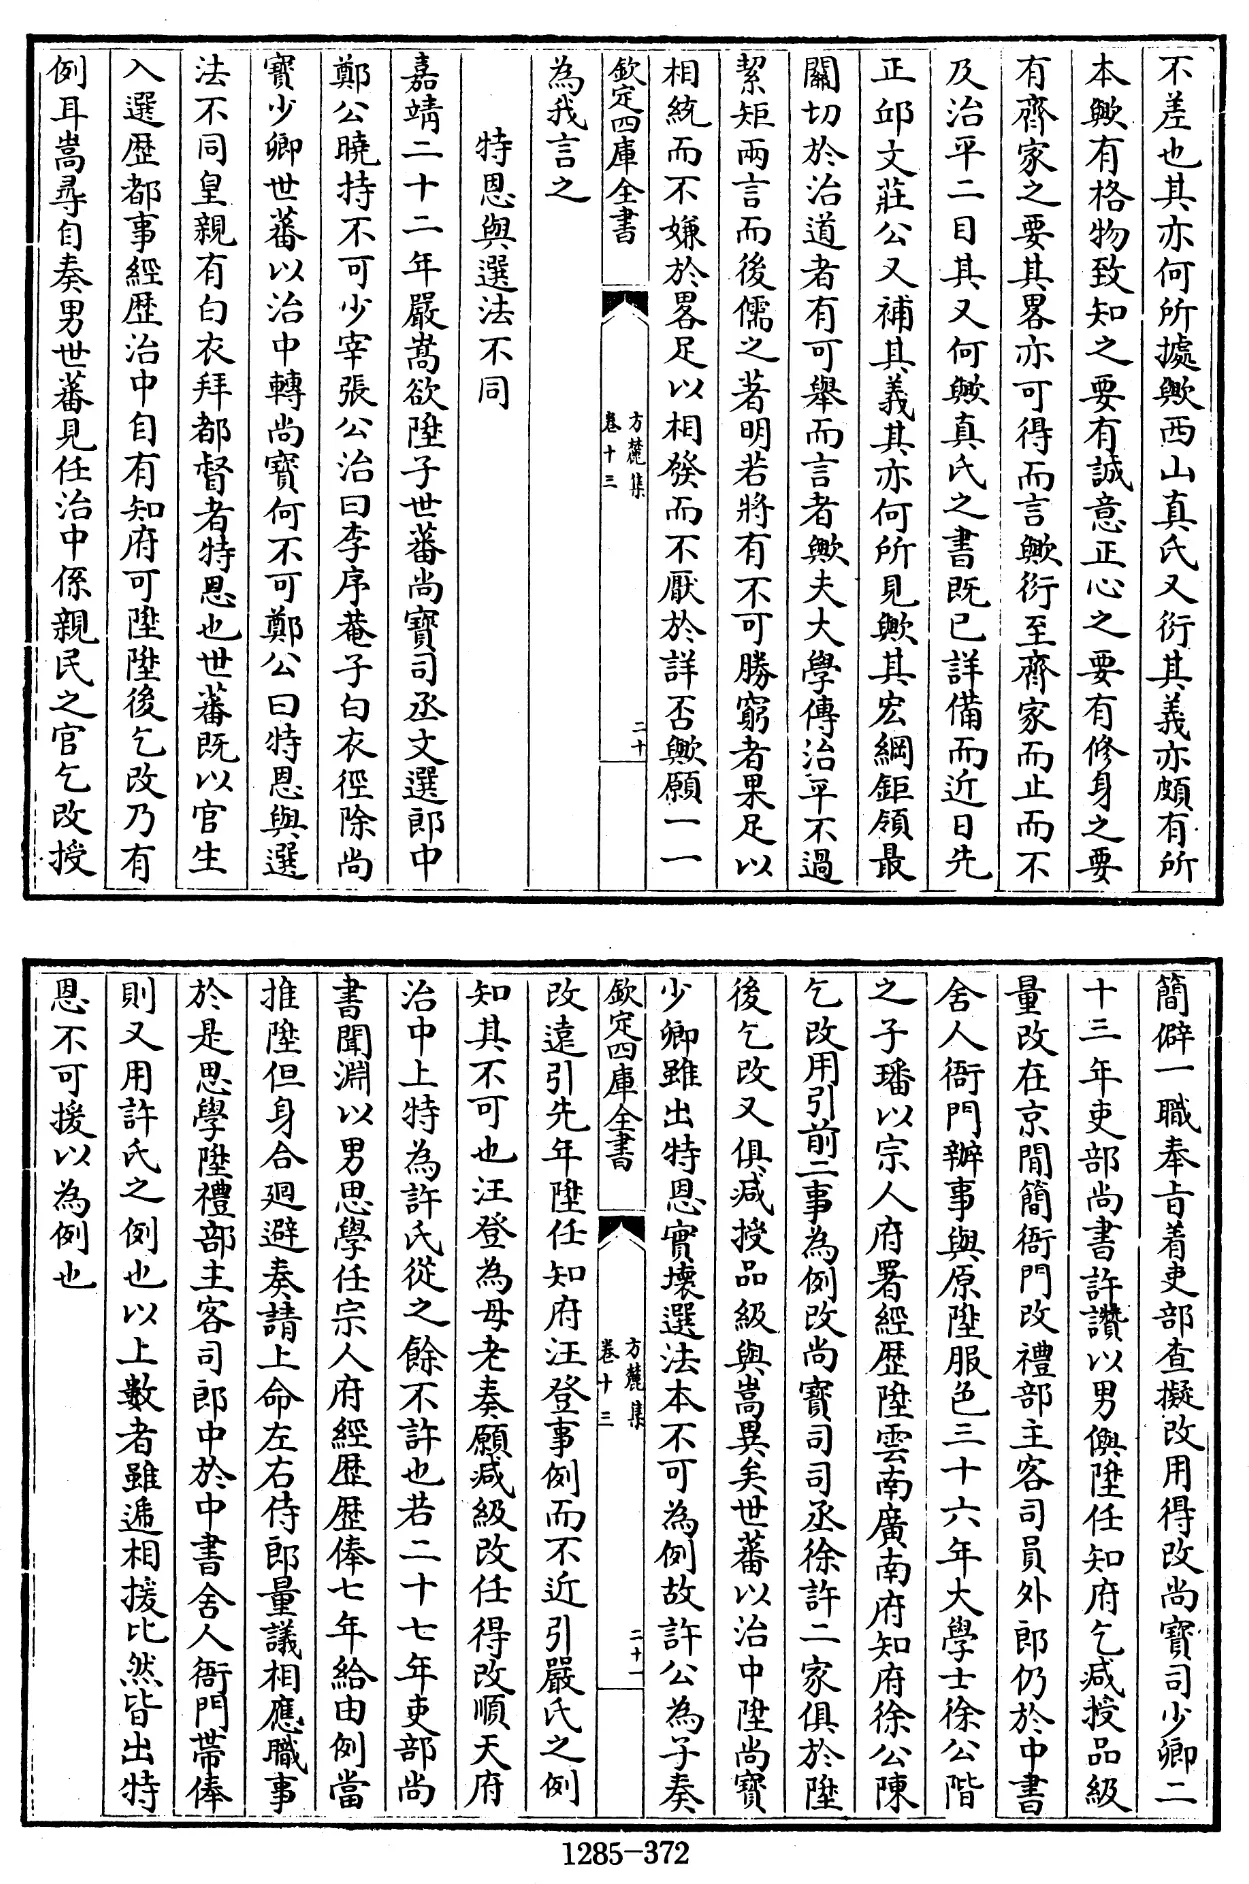 不差也其亦何所據歟西山真氏又衍其義亦頗有所
本歟有格物致知之要有誠意正心之要有修身之要
有齊家之要其畧亦可得而言歟衍至齊家而止而不
及治平二目其又何歟真氏之書既已詳備而近日先
正邱文莊公又補其義其亦何所見歟其宏綱鉅領最
關切於治道者有可舉而言者歟夫大學傳治平不過
絜矩兩言而後儒之著明若將有不可勝窮者果足以
相統而不嫌於畧足以相發而不厭於詳否歟願一一
欽定四庫全書
方麓集
卷十三
二十
為我言之
特恩與選法不同
嘉靖二十二年嚴嵩欲陞子世蕃尚寶司丞文選郎中
鄭公曉持不可少宰張公治曰李序菴子白衣徑除尚
寶少卿世蕃以治中轉尚寶何不可鄭公曰特恩與選
法不同皇親有白衣拜都督者特恩也世蕃既以官生
入選歷都事經歷治中自有知府可陞陞後乞改乃有
例耳嵩尋自奏男世蕃見任治中係親民之官乞改授
簡僻一職奉旨着吏部查擬改用得改尚寶司少卿二
十三年吏部尚書許讚以男㒜陞任知府乞減授品級
量改在京閒簡衙門改禮部主客司員外郎仍於中書
舍人衙門辦事與原陞服色三十六年大學士徐公階
之子璠以宗人府署經歷陞雲南廣南府知府徐公陳
乞改用引前二事為例改尚寶司司丞徐許二家俱於陞
後乞改又俱減授品級與嵩異矣世蕃以治中陞尚寶
少卿雖出特恩實壞選法本不可為例故許公為子奏
欽定四庫全書
方麓集
卷十三
二十一
改遠引先年陞任知府汪登事例而不近引嚴氏之例
知其不可也汪登為母老奏願減級改任得改順天府
治中上特為許氏從之餘不許也若二十七年吏部尚
書聞淵以男思學任宗人府經歷歷俸七年給由例當
推陞但身合廻避奏請上命左右侍郎量議相應職事
於是思學陞禮部主客司郎中於中書舍人衙門帶俸
則又用許氏之例也以上數者雖遞相援比然皆出特
恩不可援以為例也
1285-372